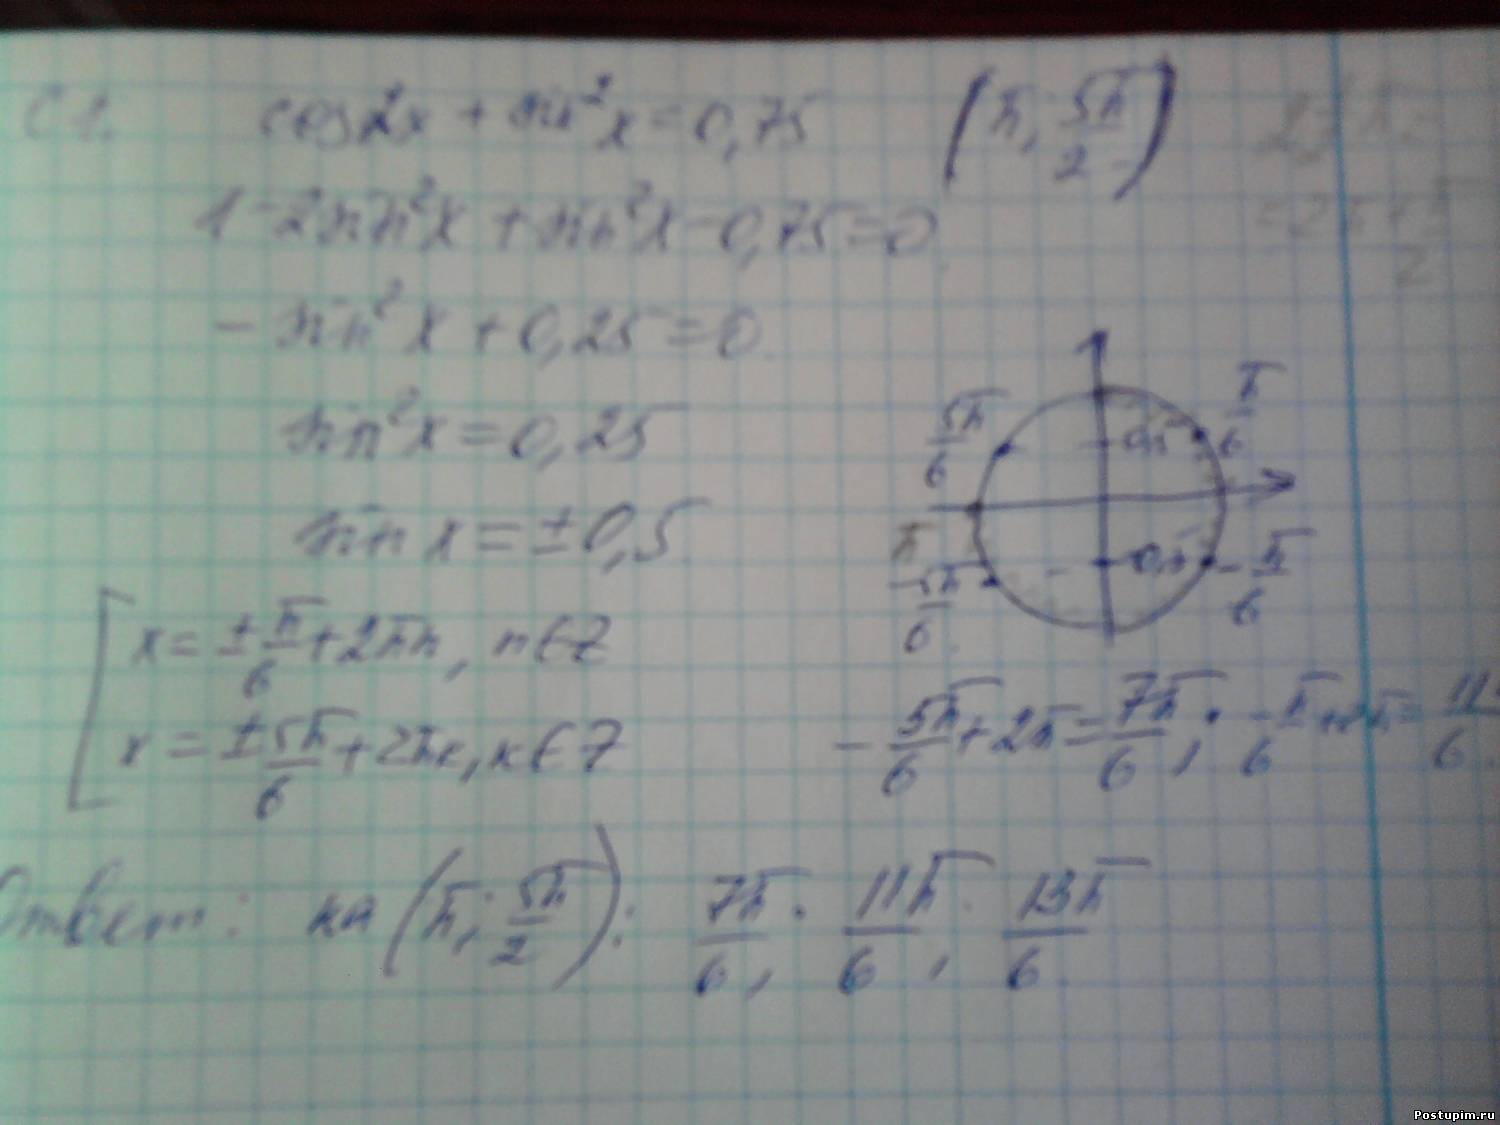 C1. cos2x + sin²x = 0,75 (π; 5π/2)
1 - 2sin²x + sin²x - 0,75 = 0
- sin²x + 0,25 = 0
sin²x = 0,25
sin x = ± 0,5
x = ± π/6 + 2πn, n ∈ Z
x = ± 5π/6 + 2πк, к ∈ Z
5π/6
0,5
π/6
π
-5π/6
-0,5
-π/6
- 5π/6 + 2π = 7π/6; - π/6 + 2π = 11π/6.
Ответ: на (π; 5π/2): 7π/6; 11π/6; 13π/6.
Postupim.ru